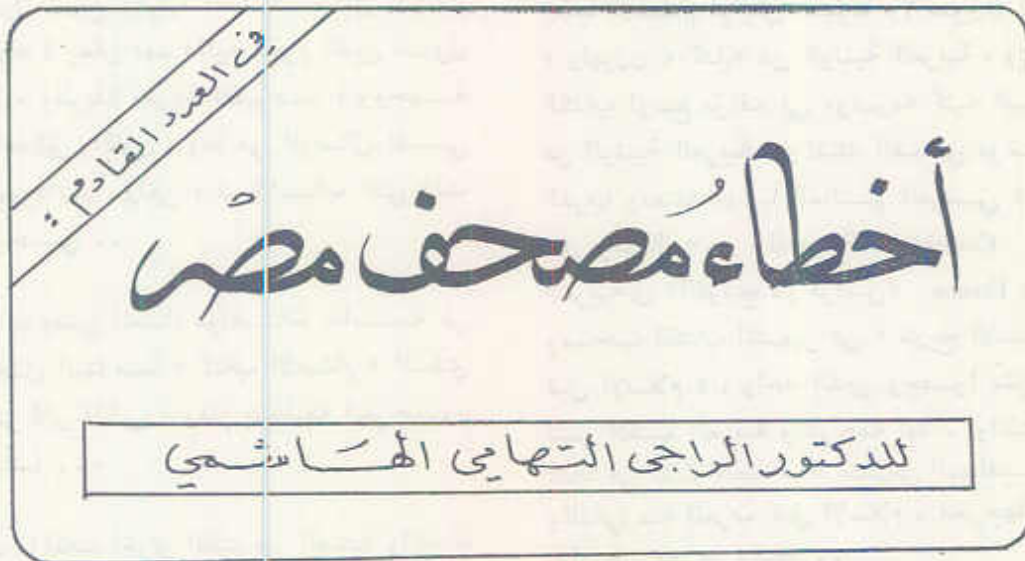 في العدد القادم :
أخطاءُ مصحف مصر
للدكتور الراجي التهامي الهاشمي